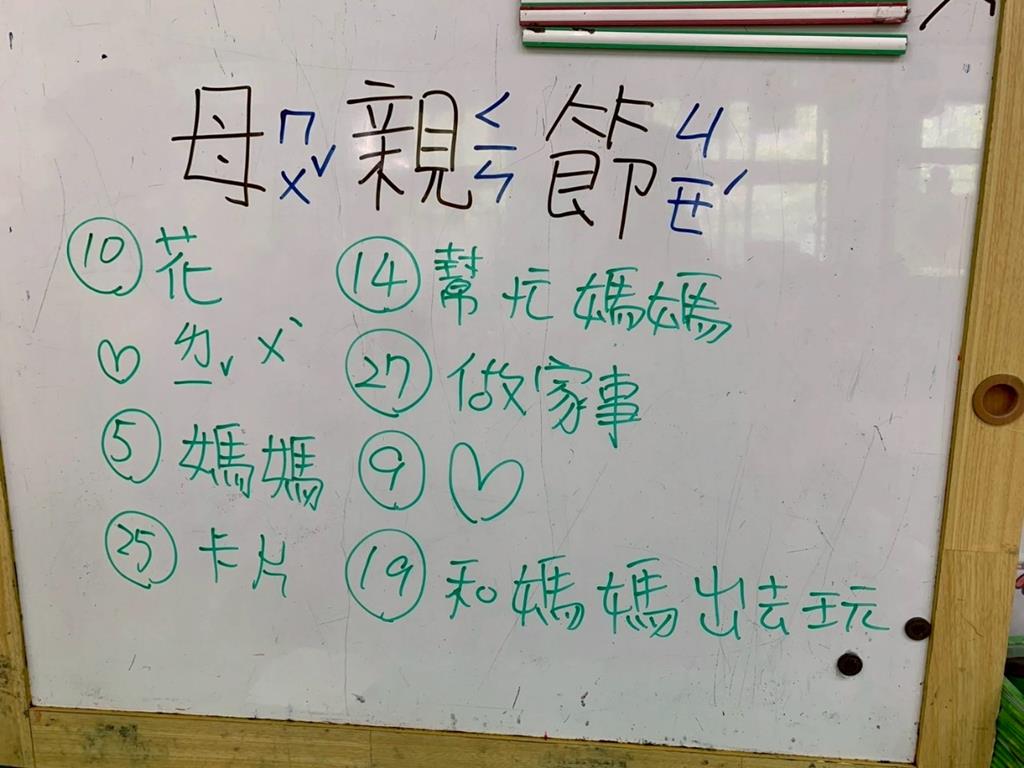 母ㄇㄨˇ親ㄑㄧㄣ節ㄐㄧㄝˊ
⑩ 花
♡ ㄌㄧˇ ㄨˋ
⑤ 媽媽
㉕ 卡片
⑭ 幫忙媽媽
㉗ 做家事
⑨ ♡
⑲ 和媽媽出去玩